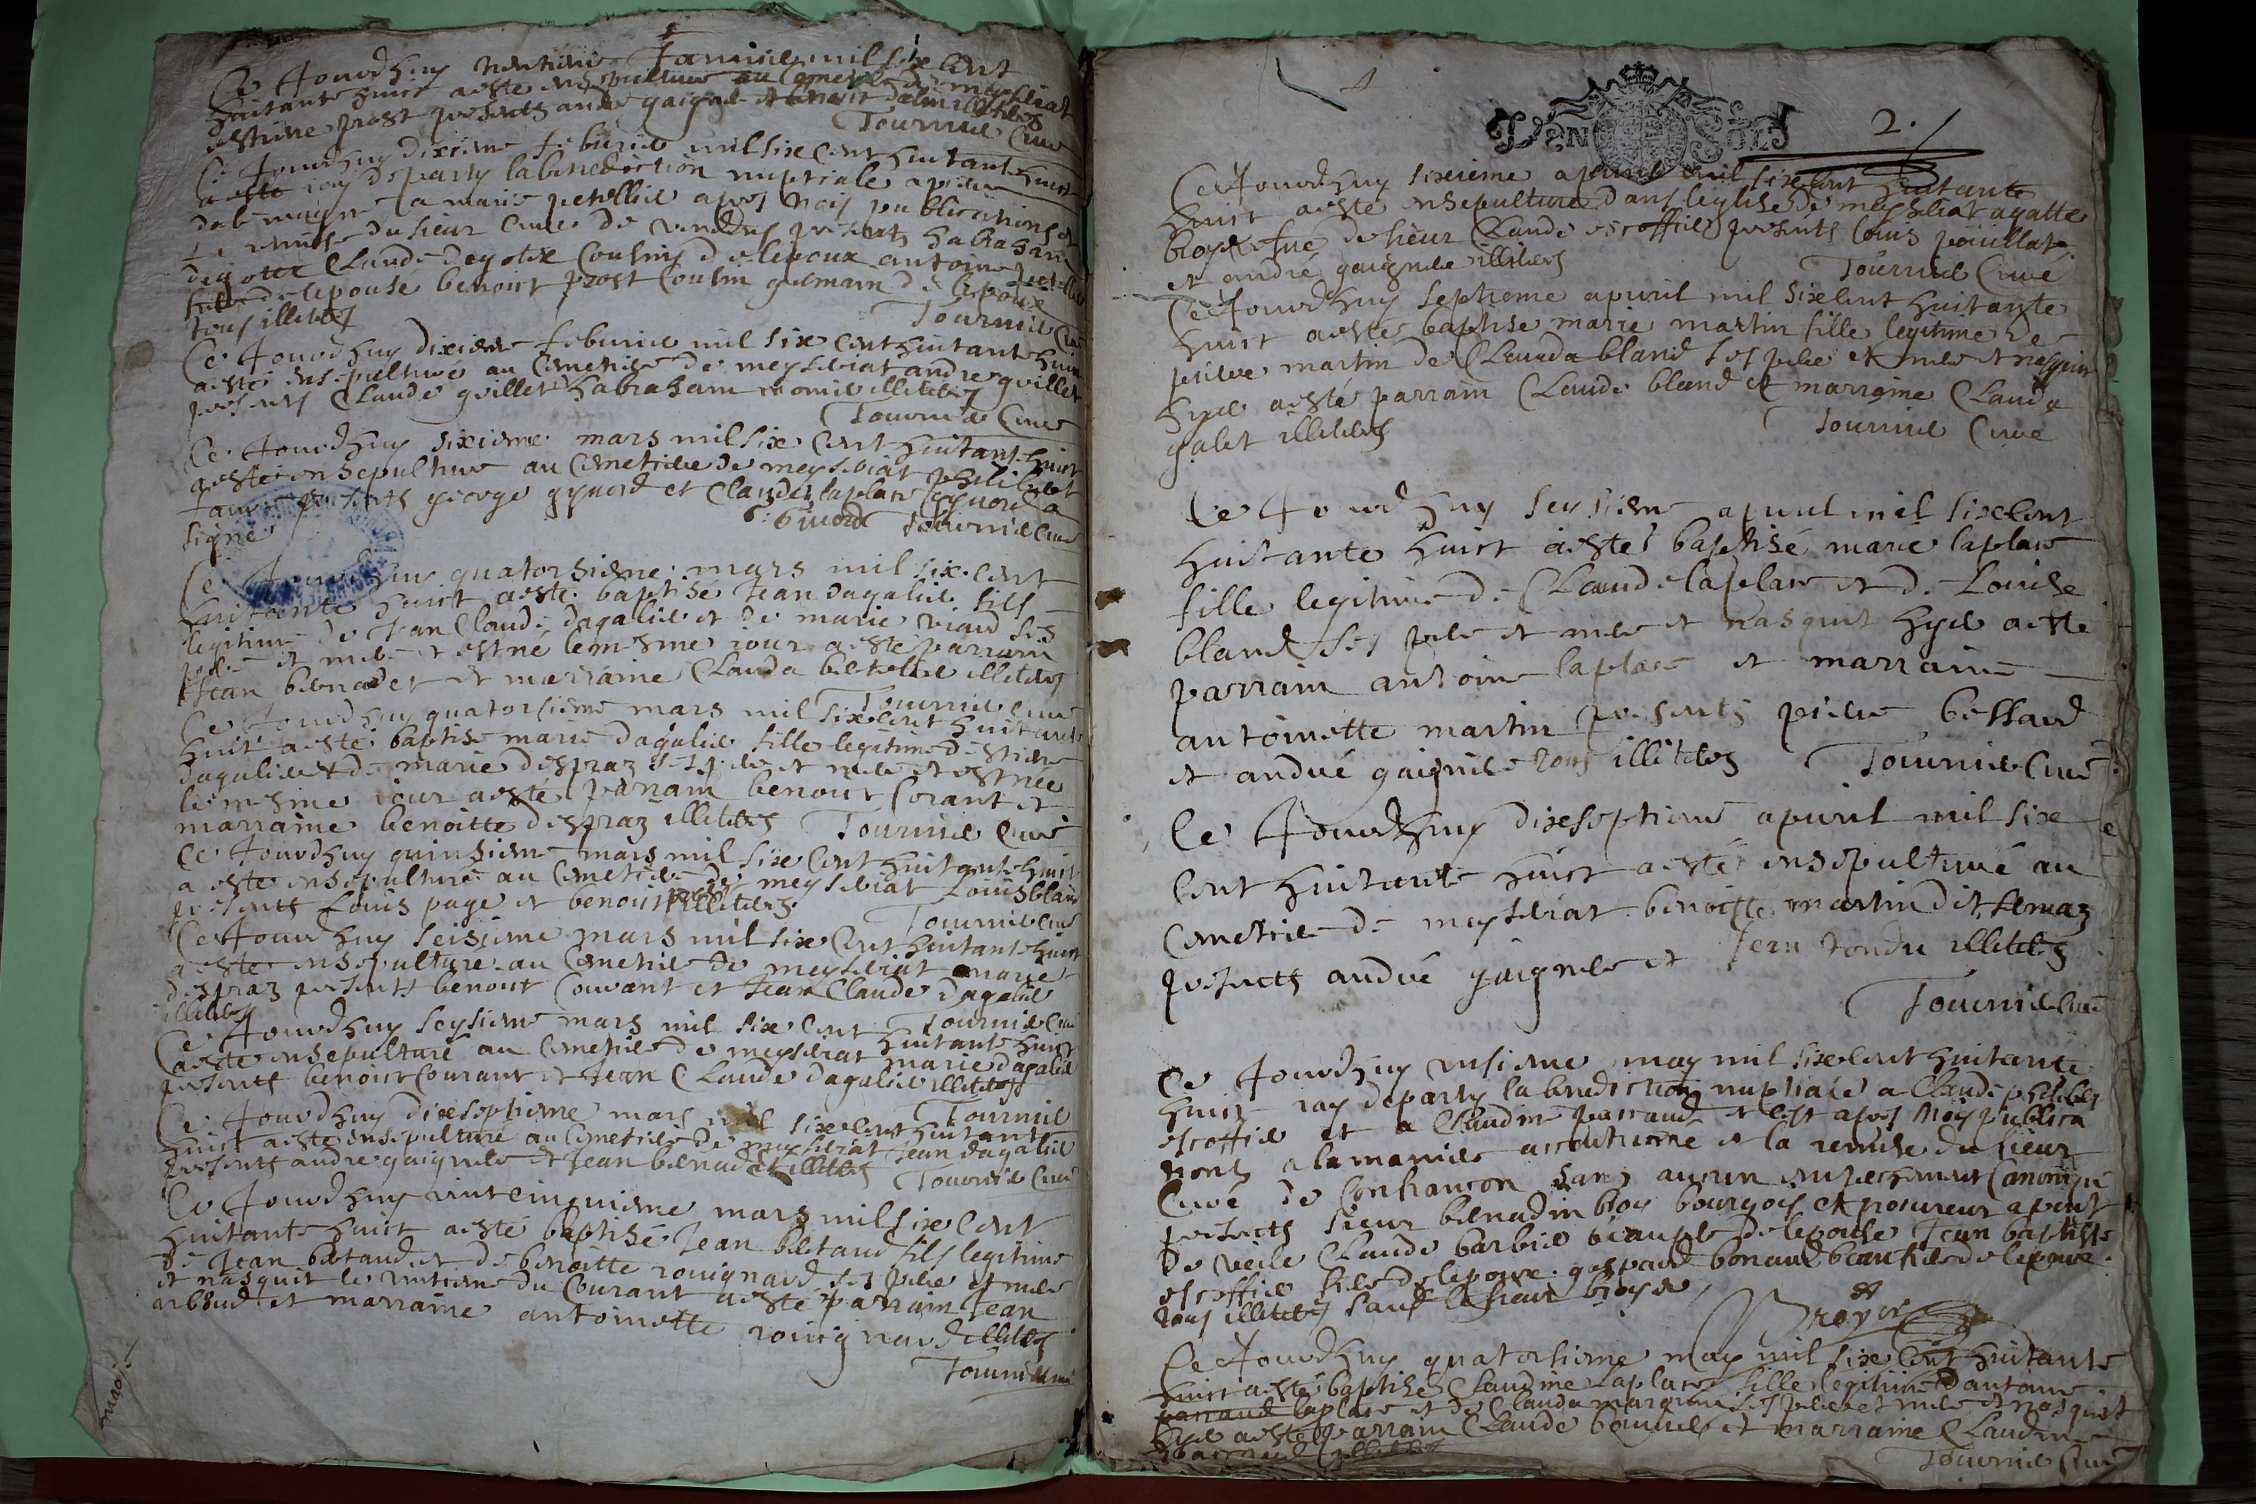 Ce Jourdhuy Janvier mil six cent
huitante huict a esté ensepulturé au cemetiere de meyseriat
prost presents andré gaignere et
Tournier Curé
Ce Jourdhuy dixieme feburier mil six cent huitante huict
a esté par iay departy la benediction nuptiale a pierre
a marie petellier apres trois publications et
la remise du sieur Curé de presents habraham
degotex Claude degotex Cousins de lepoux antoine
frere de lepouse benoict prost Cousin germain de lepouse
tous illiteres
Tournier Curé
Ce Jourdhuy dixieme feburier mil six cent huitante huict
a esté ensepulturé au cemetiere de meyseriat andre guillet
presents Claude guillet habraham illiteres
Tournier Curé
Ce Jourdhuy sixieme mars mil six cent huitante huict
a esté ensepulturé au cemetiere de meyseriat philibert
presents george gynord et Claude laplace gynord a
signé
Tournier Curé
Ce Jourdhuy quatorsieme mars mil six cent
huitante huict a esté baptisé Jean dagalier fils
legitime de Jean Claude dagalier et de marie viaud ses
pere et mere et est né le mesme iour a esté parrain
Jean bernadet et marraine Clauda illiteres
Tournier Curé
Ce Jourdhuy quatorsieme mars mil six cent huitante
huit a esté baptisé marie dagalier fille legitime destiene
dagalier et de marie despraz ses pere et mere et est née
le mesme iour a esté parrain benoict Corant et
marraine benoitte despraz illiteres Tournier Curé
Ce Jourdhuy quinsieme mars mil six cent huitante huict
a esté ensepulturé au cemetiere de meyseriat Louis bland
presents Louis page et benoist illiteres
Tournier Curé
Ce Jourdhuy seisieme mars mil six cent huitante huict
a esté ensepulturé au cemetiere de meyseriat marie
despraz presents benoict Couvant et Jean Claude dagalier
illiteres
Tournier Curé
Ce Jourdhuy seysieme mars mil six cent huitante huict
a esté ensepulturé au cemetiere de meyseriat marie dagalier
presents benoict Courant et Jean Claude dagalier illiteres
Tournier
Ce Jourdhuy dixseptieme mars mil six cent huitante
huict a esté ensepulturé au cemetiere de meyseriat Jean dagalier
presents andre gaignere et Jean bernadet illiteres Tournier Curé
Ce Jourdhuy vintcinquieme mars mil six cent
huitante huict a esté baptisé Jean betaud fils legitime
de Jean betaud et de benoitte rouignard ses pere et mere
et nasquit le vintieme du Courant a esté parrain Jean
et marraine antoinette rouignard illiteres
Tournier Curé
DEN SOLS
2.
Ce Jourdhuy sixieme apvril mil six cent huitante
huict a esté ensepulturé dans leglise de meyseriat agatte
broyer fue de sieur Claude escoffier presents Louis pouillat
et andré gaignere illiteres
Tournier Curé
Ce Jourdhuy septieme apvril mil six cent huitante
huict a esté baptisé marie martin fille legitime de
pierre martin de Clauda bland ses pere et mere et nasquit
hyer a esté parrain Claude bland et marraine Clauda
galet illiteres
Tournier Curé
Ce Jourdhuy seysieme apvril mil six cent
huitante huict a esté baptisé marie laplace
fille legitime de Claude laplace et de Louise
bland ses pere et mere et nasquit hyer a esté
parrain antoine laplace et marraine
antoinette martin presents pierre bessard
et andré gaignere tous illiteres Tournier Curé
Ce Jourdhuy dixseptieme apvril mil six
cent huitante huict a esté ensepulturé au
cemetiere de meyseriat benoitte martin dit
presents andré gaignere et Jean tondu illiteres
Tournier Curé
Ce Jourdhuy unsieme may mil six cent huitante
huict iay departy la benediction nuptiale a Claude philibert
escoffier et a Claudine parraud et cest apres trois publica
tions a la maniere accoutumé et la remise du sieur
Curé de Confrancon sans aucun empechement Canonique
presents sieur bernadin broyer bourgois et procureur a pont
de veile Claude barbier beaupere de lepouse Jean baptiste
escoffier frere de lepoux gaspard bonaud beaufrere de lepoux
tous illiteres sauf le sieur broyer
Broyer
Ce Jourdhuy quatorsieme may mil six cent huitante
huict a esté baptisé Claudine Laplace fille legitime dantoine
parraud laplace et de Clauda ses pere et mere et nasquit
hyer a esté parrain Claude et marraine Claudine
illiteres
Tournier Curé